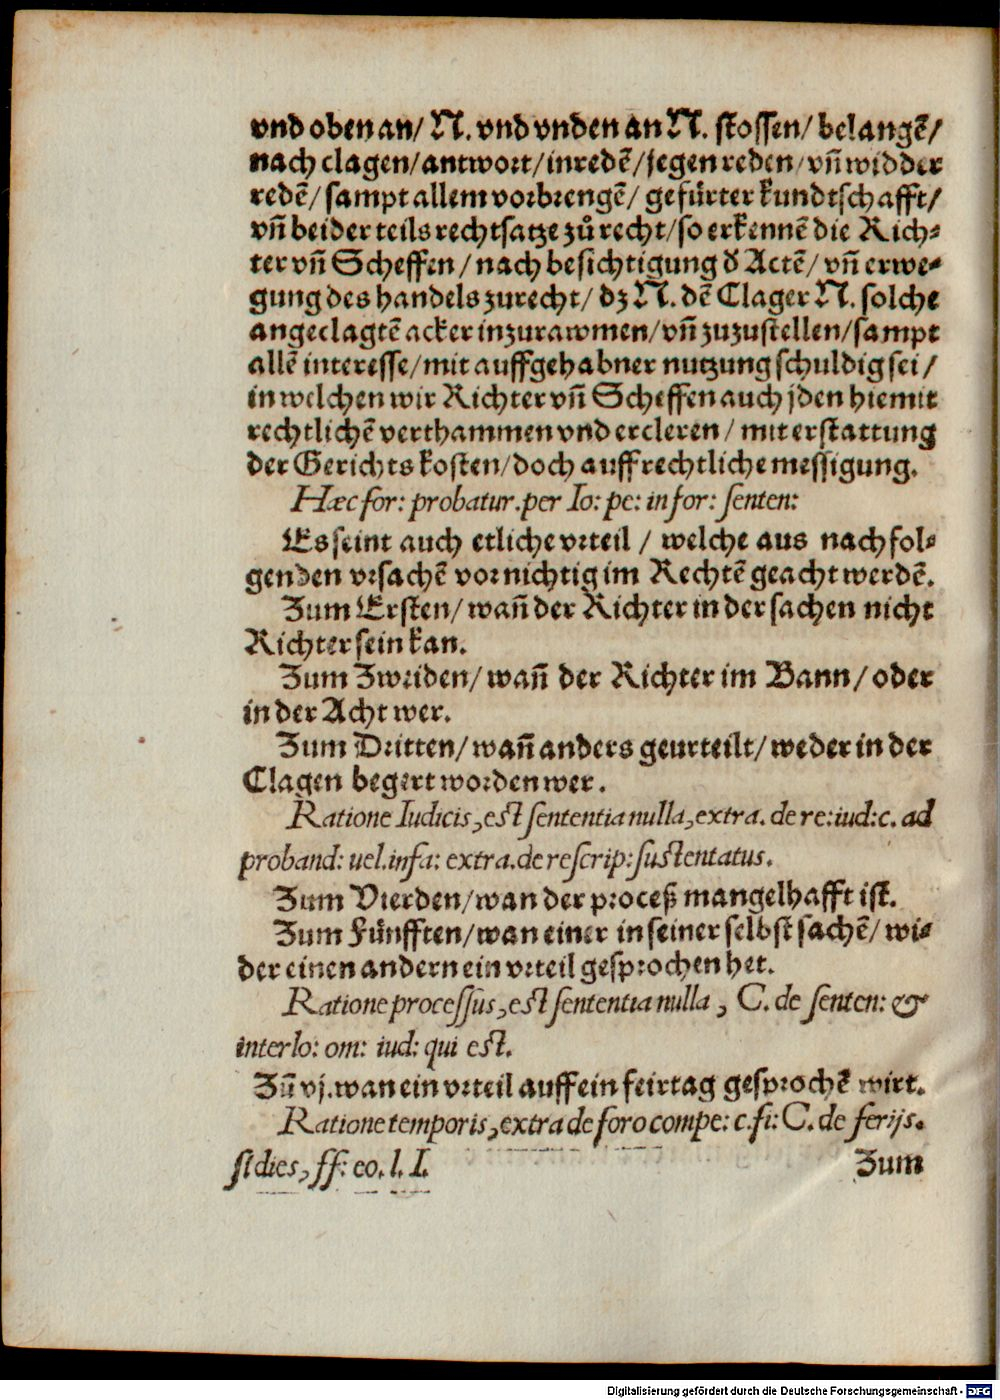 vnd oben an/ N. vnd vnden an N. stossen/ belangē/
nach clagen/ antwort/ inredē/ jegen reden/ vñ widder
redē/ sampt allem vorbrengē/ gefürter kundtschafft/
vñ beider teils rechtsatze zů recht/ so erkennē die Rich⸗
ter vñ Scheffen/ nach besichtigung đ Actē/ vñ erwe⸗
gung des handels zurecht/ dz N. dē Clager N. solche
angeclagtē acker inzurawmen/ vñ zuzustellen/ sampt
allē interesse/ mit auffgehabner nutzung schuldig sei/
in welchen wir Richter vñ Scheffen auch jden hiemit
rechtlichē verthammen vnd ercleren/ mit erstattung
der Gerichts kosten/ doch auff rechtliche messigung.
Hæc for: probatur. per Io: pe: in for: senten:
Es seint auch etliche vrteil/ welche aus nachfol⸗
genden vrsachē vor nichtig im Rechtē geacht werdē.
Zum Ersten/ wañ der Richter in der sachen nicht
Richter sein kan.
Zum Zweiden/ wañ der Richter im Bann/ oder
in der Acht wer.
Zum Dritten/ wañ anders geurteilt/ weder in der
Clagen begert worden wer.
Ratione Iudicis, est sententia nulla, extra. de re: iud: c. ad
proband: uel. infa: extra. de rescrip: sustentatus.
Zum Vierden/ wan der proceß mangelhafft ist.
Zum Fünfften/ wan einer in seiner selbst sachē/ wi⸗
der einen andern ein vrteil gesprochen het.
Ratione processus, est sententia nulla, C. de senten: &
interlo: om: iud: qui est.
Zū vj. wan ein vrteil auff ein feirtag gesprochē wirt.
Ratione temporis, extra de foro compe: c. fi: C. de ferijs.
si dies, ff: eo. l. I.
Zum
Digitalisierung gefördert durch die Deutsche Forschungsgemeinschaft - DFG